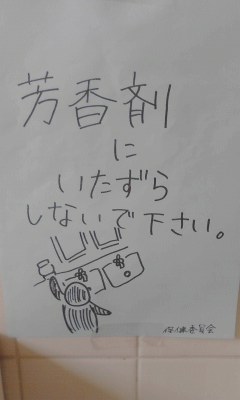 芳香剤
に
いたずら
しないで下さい。
保健委員会